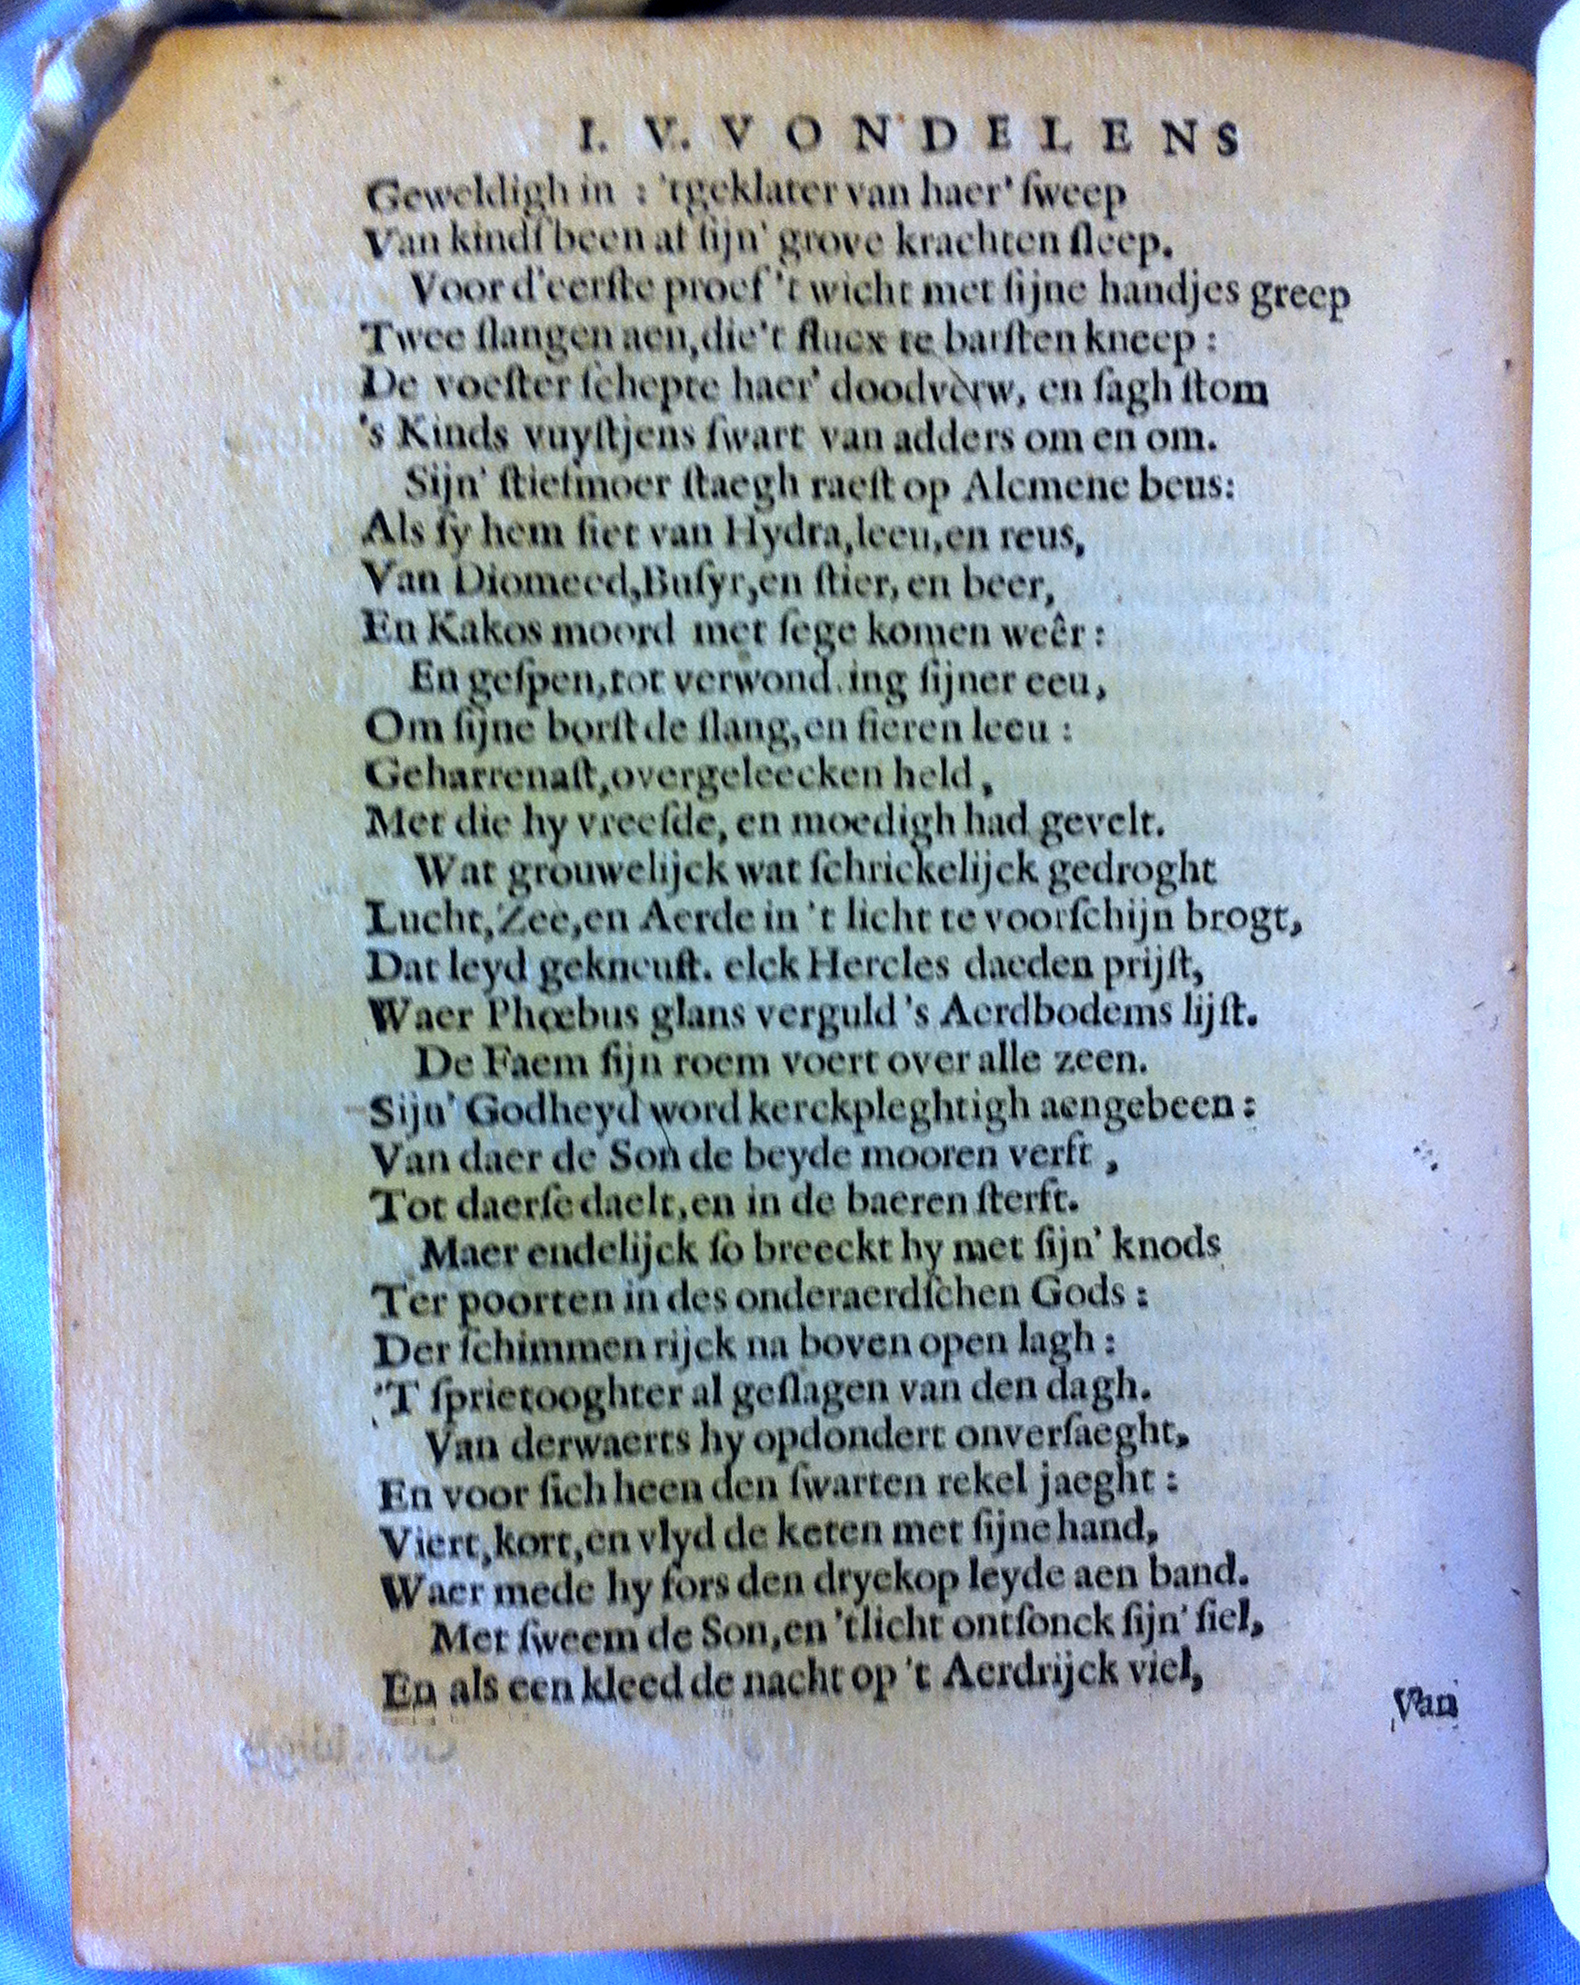 I. V. VONDELENS
Geweldigh in : 'tgeklater van haer' ſweep
Van kindſ been af ſijn' grove krachten ſleep.
Voor d'eerſte proef 't wicht met ſijne handjes greep
Twee ſlangen aen,die't flucx te barſten kneep :
De voeſter ſchepte haer' doodvèrw, en ſagh ſtom
's Kinds vuyſtjens ſwart van adders om en om.
Sijn' ſtiefmoer ſtaegh raeſt op Alcmene beus:
Als ſy hem ſiet van Hydra,leeu,en reus,
Van Diomeed,Buſyr,en ſtier, en beer,
En Kakos moord met ſege komen weêr :
En geſpen,tot verwond.ing ſijner eeu,
Om ſijne borſt de ſlang,en fieren leeu :
Geharrenaſt,overgeleecken held,
Met die hy vreeſde, en moedigh had gevelt.
Wat grouwelijck wat ſchrickelijck gedroght
Lucht,Zee,en Aerde in 't licht te voorſchijn brogt,
Dat leyd gekneuſt. elck Hercles daeden prijſt,
Waer Phœbus glans verguld 's Aerdbodems lijſt.
De Faem ſijn roem voert over alle zeen.
Sijn' Godheyd word kerckpleghtigh aengebeen :
Van daer de Son de beyde mooren verft ,
Tot daerſe daelt,en in de baeren ſterft.
Maer endelijck ſo breeckt hy met ſijn' knods
Ter poorten in des onderaerdſchen Gods :
Der ſchimmen rijck na boven open lagh :
'T ſprietooghter al geſlagen van den dagh.
Van derwaerts hy opdondert onverſaeght,
En voor ſich heen den ſwarten rekel jaeght :
Viert,kort,en vlyd de keten met ſijne hand,
Waer mede hy fors den dryekop leyde aen band.
Met ſweem de Son,en 'tlicht ontſonck ſijn' ſiel,
En als een kleed de nacht op 't Aerdrijck viel,
Van